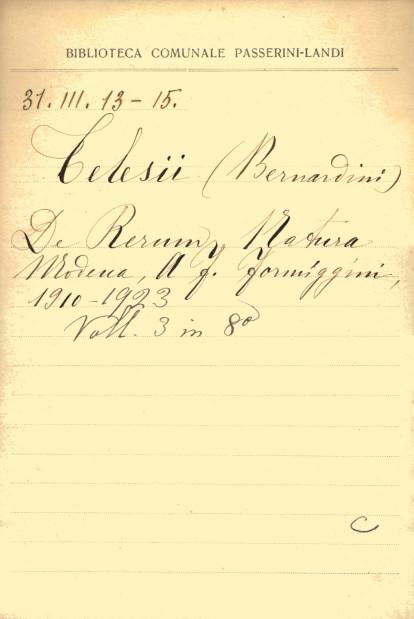 BIBLIOTECA COMUNALE PASSERINI-LANDI
31. III. 13-15.
Telesii (Bernardini)
De Rerum Natura
Modena, A. F. Formiggini,
1910-1923
Voll. 3 in 8º
C